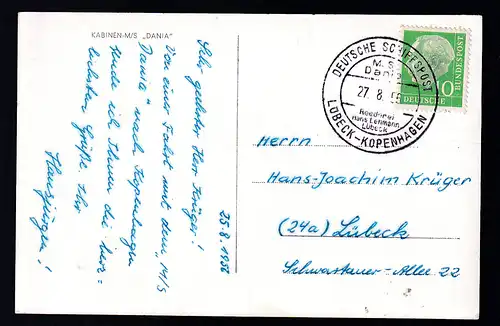 KABINEN-M/S „DANIA"
25.8.1956
Sehr geehrter Herr Krüger!
Von einer Fahrt mit dem „M/S
Dania" nach Kopenhagen
sende ich Ihnen die herz-
lichsten Grüße. Ihr
Hansjürgen!
DEUTSCHE SCHIFFSPOST
M.S
Dania
27. 8. 56
Reederei
Hans Lehmann
Lübeck
LÜBECK-KOPENHAGEN
DEUTSCHE
BUNDESPOST
10
Herrn
Hans-Joachim Krüger
(24a) Lübeck
Schwartauer-Allee 22